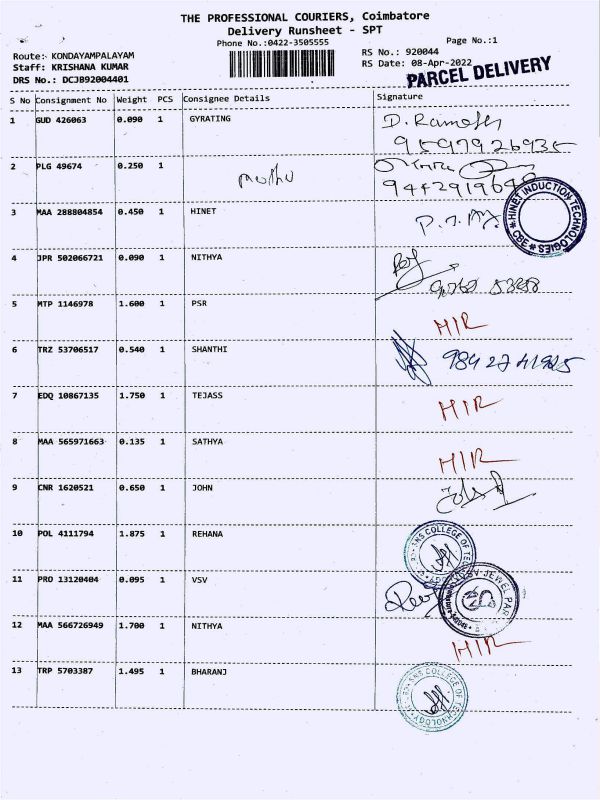 THE PROFESSIONAL COURIERS, Coimbatore
Delivery Runsheet - SPT
Phone No.:0422-3505555
Page No.:1
Route:- KONDAYAMPALAYAM
RS No.: 920044
Staff: KRISHANA KUMAR
RS Date: 08-Apr-2022
DRS No.: DCJB92004401
PARCEL DELIVERY
S No Consignment No Weight PCS Consignee Details Signature
1 GUD 426063 0.090 1 GYRATING D. Ramesh
9597926935
2 PLG 49674 0.250 1 muthu
3 MAA 288804854 0.450 1 HINET
HINET INDUCTION TECHNOLOGIES * CBE *
4 JPR 502066721 0.090 1 NITHYA
5 MTP 1146978 1.600 1 PSR MIR
6 TRZ 53706517 0.540 1 SHANTHI 9842741925
7 EDQ 10867135 1.750 1 TEJASS MIR
8 MAA 565971663 0.135 1 SATHYA MIR
9 CNR 1620521 0.650 1 JOHN
10 POL 4111794 1.875 1 REHANA
SNS COLLEGE OF
11 PRO 13120404 0.095 1 VSV
VSV JEWEL PAR
12 MAA 566726949 1.700 1 NITHYA MIR
13 TRP 5703387 1.495 1 BHARANJ
SNS COLLEGE OF TECHNOLOGY